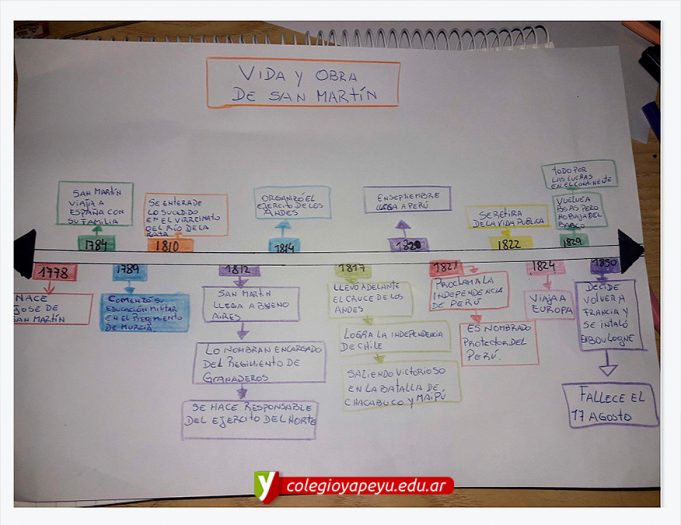 VIDA Y OBRA
DE SAN MARTÍN
SAN MARTÍN
VIAJA A
ESPAÑA CON
SU FAMILIA
1784
SE ENTERA DE
LO SUCEDIDO
EN EL VIRREINATO
DEL RÍO DE LA
PLATA
1810
ORGANIZÓ EL
EJERCITO DE LOS
ANDES
1814
EN SEPTIEMBRE
LLEGA A PERÚ
1820
SE RETIRA
DE LA VIDA PÚBLICA
1822
TODO POR
LAS LUCHAS
EN EL CONTINENTE
VUELVE A
BS AS PERO
NO BAJA DEL
BARCO
1829
1778
NACE
JOSE DE
SAN MARTÍN
1789
COMENZÓ SU
EDUCACIÓN MILITAR
EN EL REGIMIENTO
DE MURCIA
1812
SAN MARTIN
LLEGA A BUENO
AIRES
LO NOMBRAN ENCARGADO
DEL REGIMIENTO DE
GRANADEROS
SE HACE RESPONSABLE
DEL EJERCITO DEL NORTE
1817
LLEVÓ ADELANTE
EL CRUCE DE LOS
ANDES
LOGRA LA INDEPENDENCIA
DE CHILE
SALIENDO VICTORIOSO
EN LA BATALLA DE
CHACABUCO Y MAIPÚ
1821
PROCLAMA LA
INDEPENDENCIA
DE PERÚ
ES NOMBRADO
PROTECTOR DEL
PERÚ.
1824
VIAJA A
EUROPA
1850
DECIDE
VOLVER A
FRANCIA Y
SE INTALÓ
EN BOULOGNE
FALLECE EL
17 AGOSTO
colegioyapeyu.edu.ar